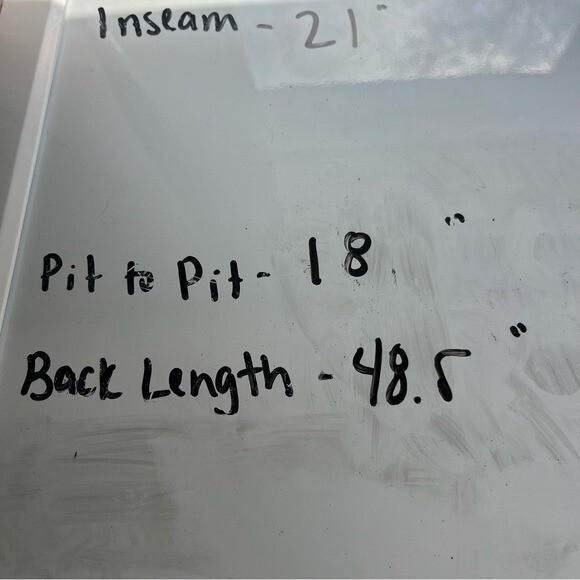 Inseam - 21"
Pit to Pit - 18 "
Back Length - 48.5 "